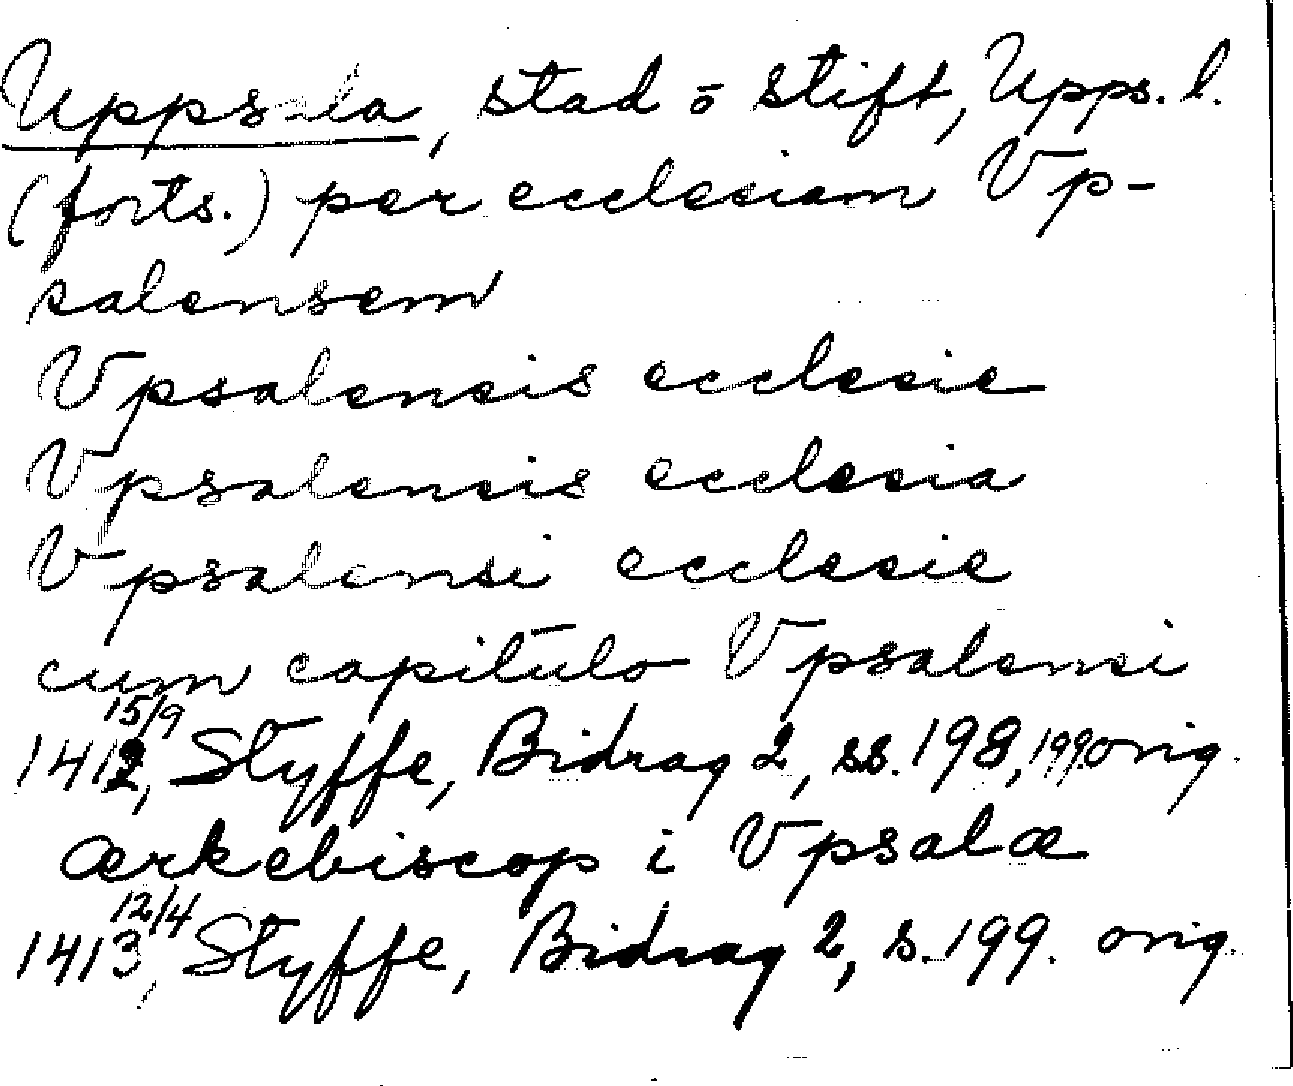 Uppsala, stad o stift, Upps. l.
(forts.) per ecclesiam Vp-
salensem
Vpsalensis ecclesie
Vpsalensis ecclesia
Vpsalensi ecclesie
cum capitulo Vpsalensi
15/9
1412, Styffe, Bidrag 2, ss. 198, 199. orig.
ærkebiscop i Vpsalæ
12/4
1413, Styffe, Bidrag 2, s. 199. orig.